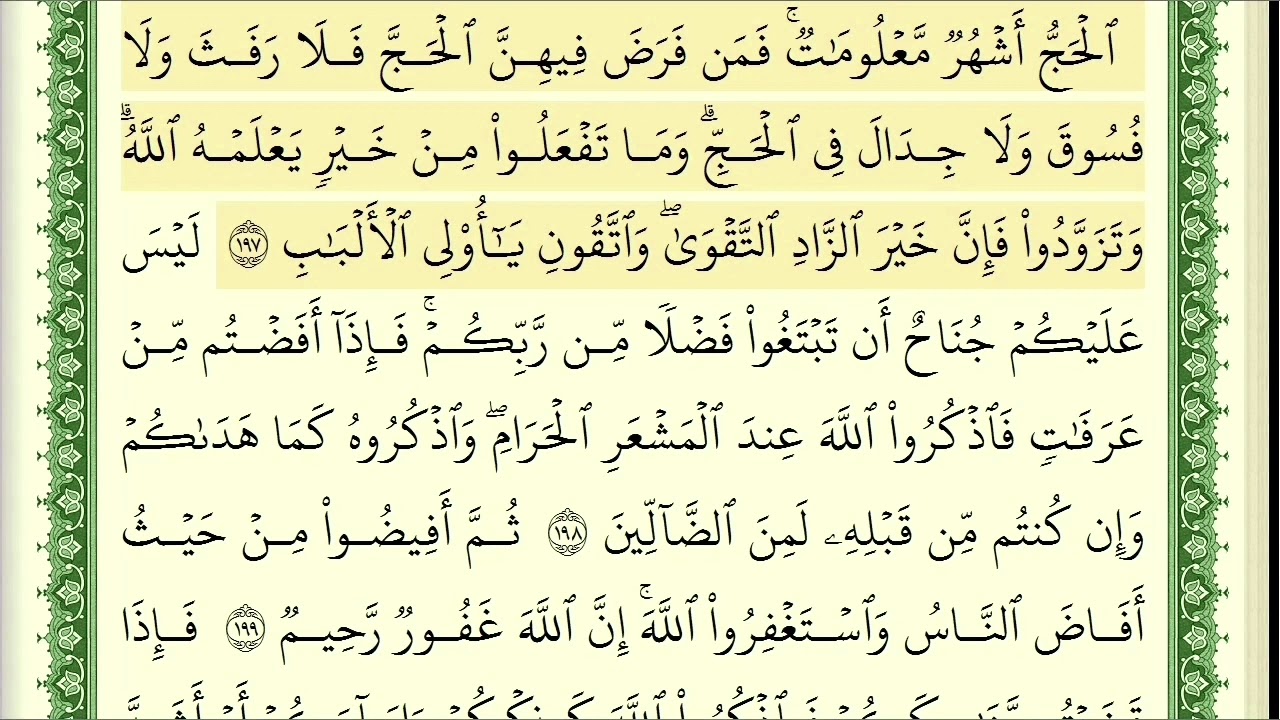 ٱلْحَجُّ أَشْهُرٌ مَّعْلُومَٰتٌ ۚ فَمَن فَرَضَ فِيهِنَّ ٱلْحَجَّ فَلَا رَفَثَ وَلَا
فُسُوقَ وَلَا جِدَالَ فِى ٱلْحَجِّ ۗ وَمَا تَفْعَلُوا۟ مِنْ خَيْرٍ يَعْلَمْهُ ٱللَّهُ ۗ
وَتَزَوَّدُوا۟ فَإِنَّ خَيْرَ ٱلزَّادِ ٱلتَّقْوَىٰ ۖ وَٱتَّقُونِ يَٰٓأُو۟لِى ٱلْأَلْبَٰبِ ١٩٧ لَيْسَ
عَلَيْكُمْ جُنَاحٌ أَن تَبْتَغُوا۟ فَضْلًا مِّن رَّبِّكُمْ ۚ فَإِذَآ أَفَضْتُم مِّنْ
عَرَفَٰتٍ فَٱذْكُرُوا۟ ٱللَّهَ عِندَ ٱلْمَشْعَرِ ٱلْحَرَامِ ۖ وَٱذْكُرُوهُ كَمَا هَدَىٰكُمْ
وَإِن كُنتُم مِّن قَبْلِهِۦ لَمِنَ ٱلضَّآلِّينَ ١٩٨ ثُمَّ أَفِيضُوا۟ مِنْ حَيْثُ
أَفَاضَ ٱلنَّاسُ وَٱسْتَغْفِرُوا۟ ٱللَّهَ ۚ إِنَّ ٱللَّهَ غَفُورٌ رَّحِيمٌ ١٩٩ فَإِذَا